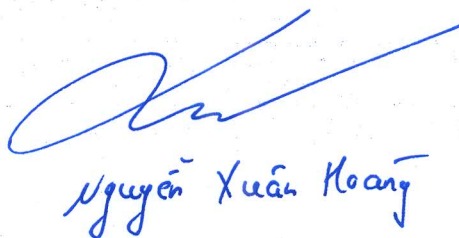 Nguyễn Xuân Hoàng